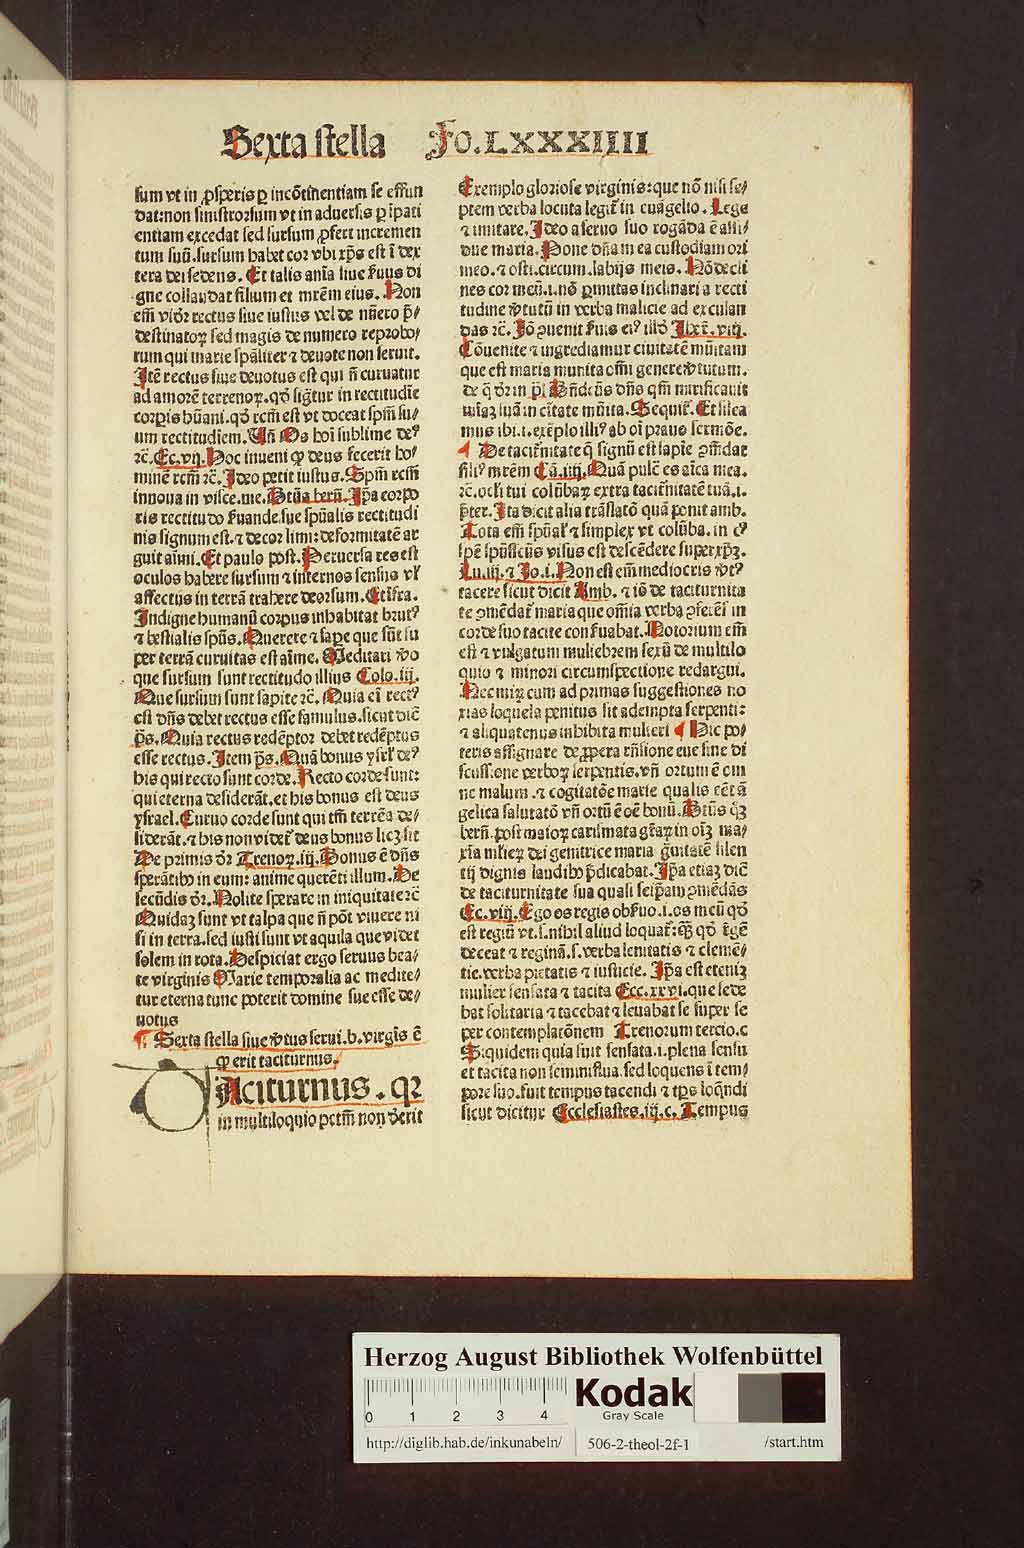 Sexta stella Fo. LXXXIIII
sum vt in ꝓsperis ꝑ incōtinentiam se effun
dat: non sinistrorsum vt in aduersis ꝑ īpati
entiam excedat sed sursum ꝓfert incremen
tum suū. sursum habet cor vbi xp̄s est ī dex
tera dei sedens. Et talis aīa siue ẜuus di
gne collaudat filium et mr̄em eius. Non
em̄ vidr̄ rectus siue iustus vel de nūero p̄⸗
destinatoꝝ sed magis de numero reprobo⸗
rum qui marie spāliter ⁊ deuote non seruit.
Itē rectus siue deuotus est qui n̄ curuatur
ad amorē terrenoꝝ. qd̓ sigtur in rectitudīe
corpis hūani. qd̓ rcm̄ est vt doceat spm̄ su⸗
um rectitudīem. Vn̄ Os hoī sublime deꝰ
⁊c̄. Ec. vij. Hoc inueni ꝙ deus fecerit ho⸗
minē rcm̄ ⁊c̄. Ideo petit iustus. Spm̄ rcm̄
innoua in visce. me. Btūs bern̄. Ip̄a corpo
ris rectitudo ẜuande. sue spūalis rectitudi
nis signum est. ⁊ decor limi: deformitatē ar
guit aīmi. Et paulo post. Peruersa res est
oculos habere sursum ⁊ internos sensus vl̓
affectus in terrā trahere deorsum. Et īfra.
Indigne humanū corpus inhabitat brutꝰ
⁊ bestialis spūs. Querere ⁊ sape que sūt su
per terrā curuitas est aīme. Meditari ꝟo
que sursum sunt rectitudo illius Colo. iij.
Que sursum sunt sapite ⁊c̄. Quia eī rectꝰ
est dn̄s debet rectus esse famulus. sicut dic̄
ps̄. Quia rectus redēptor debet redēptus
esse rectus. Item ps̄. Quā bonus ysrl̓ deꝰ
his qui recto sunt corde. Recto corde sunt:
qui eterna desiderāt. et his bonus est deus
ysrael. Curuo corde sunt qui tm̄ terrēa de⸗
siderāt. ⁊ his non videt̓ deus bonus licꝫ sit
De primis dr̄ Trenoꝝ. iij. Bonus ē dn̄s
sperātibꝰ in eum: anime querēti illum. De
secūdis dr̄. Nolite sperare in iniquitate ⁊c̄
Quidaꝫ sunt vt talpa que n̄ pōt viuere ni
si in terra. sed iusti sunt vt aquila que videt
solem in rota. Despiciat ergo seruus bea⸗
te virginis Marie temporalia ac medite⸗
tur eterna tunc poterit domine sue esse de⸗
uotus
¶ Sexta stella siue ꝟtus serui. b. virgīs ē
ꝙ erit taciturnus.
Taciturnus. qꝛ
in multiloquio pctm̄ non d̓erit
Exemplo gloriose virginis: que nō nisi se⸗
ptem verba locuta legit̓ in euāgelio. Lege
⁊ imitare. Ideo a seruo suo rogāda ē assi⸗
due maria. Pone dn̄e in ea custodiam ori
meo. ⁊ osti. circum. labijs meis. Nō decli
nes cor meū. i. nō ꝑmittas inclinari a recti
tudine ꝟtutū in verba malicie ad excusan
das ⁊c̄. Iō ꝯuenit ẜuis eiꝰ illd̓ Iherē. viij.
Cōuenite ⁊ ingrediamur ciuitatē mūitam
que est maria munita om̄i genere ꝟtutum.
de q̄ dr̄ in ps̄ Bn̄dictus dn̄s qm̄ mirificauit
miāꝫ suā in ciuitate mūita. Sequit̓. Et silea
mus ibi. i. exēplo illiꝰ ab oī prauo sermōe.
¶ De tacit̓nitate q̄ signū est sapīe ꝯm̄dat
filiꝰ mr̄em Cā. iiij. Quā pulc̄ es aīca mea.
⁊c̄. ocl̓i tui colūbaꝝ extra tacit̓nitatē tuā. i.
pter. Ita dicit alia trāslatō quā ponit amb.
Tota em̄ spūal̓ ⁊ simplex vt colūba. in cꝰ
spē spūsc̄ūs visus est descēdere super xp̄ꝫ.
Lu. iij. ⁊ Jo. i. Non est em̄ mediocris ꝟtꝰ
tacere sicut dicit Amb. ⁊ iō de taciturnita
te ꝯmēdat̓ maria que om̄ia verba ꝯferēs in
corde suo tacite conẜuabat. Notorium em̄
est ⁊ vulgatum muliebrem sexū de multilo
quio ⁊ minori circumspectione redargui.
Nec mirꝫ cum ad primas suggestiones no
xias loquela penitus sit adempta serpenti:
⁊ aliquatenus inhibita mulieri ¶ Hic po⸗
teris assignare de ꝓpera rn̄sione eue sine di
scussione verboꝝ serpentis. vn̄ ortum ē om
ne malum. ⁊ cogitatōe marie qualis eēt ā
gelica salutatō vn̄ ortū ē oē bonū. Btūs qꝫ
bern̄. post maioꝝ carismata gr̄aꝝ in oīꝫ ma⸗
xīa mirꝫ dei genitrice maria gͣuitatē silen
tij dignis laudibꝰ p̄dicabat. Ip̄a etiaꝫ dic̄
de taciturnitate sua quasi seipam ꝯmēdās
Ec. viij. Ego os regis obẜuo. i. os meū qd̓
est regiū vt. s. nihil aliud loquat̓: qꝫ qd̓ regē
deceat ⁊ reginā. s. verba lenitatis ⁊ clemē⸗
tie. verba pietatis ⁊ iusticie. Ip̄a est etenīꝫ
mulier sensata ⁊ tacita Ecc. xxvi. que sede
bat solitaria ⁊ tacebat ⁊ leuabat se super se
per contemplatōnem Trenorum tercio. c
Siquidem quia sunt sensata. i. plena sensu
et tacita non seminiflua. sed loquens ī tem⸗
pore suo. fuit tempus tacendi ⁊ tps̄ loqn̄di
sicut dicitur Ecclesiastes. iij. c. Tempus
Herzog August Bibliothek Wolfenbüttel
0 1 2 3 4
Kodak
Gray Scale
http://diglib.hab.de/inkunabeln/ 506-2-theol-2f-1 /start.htm